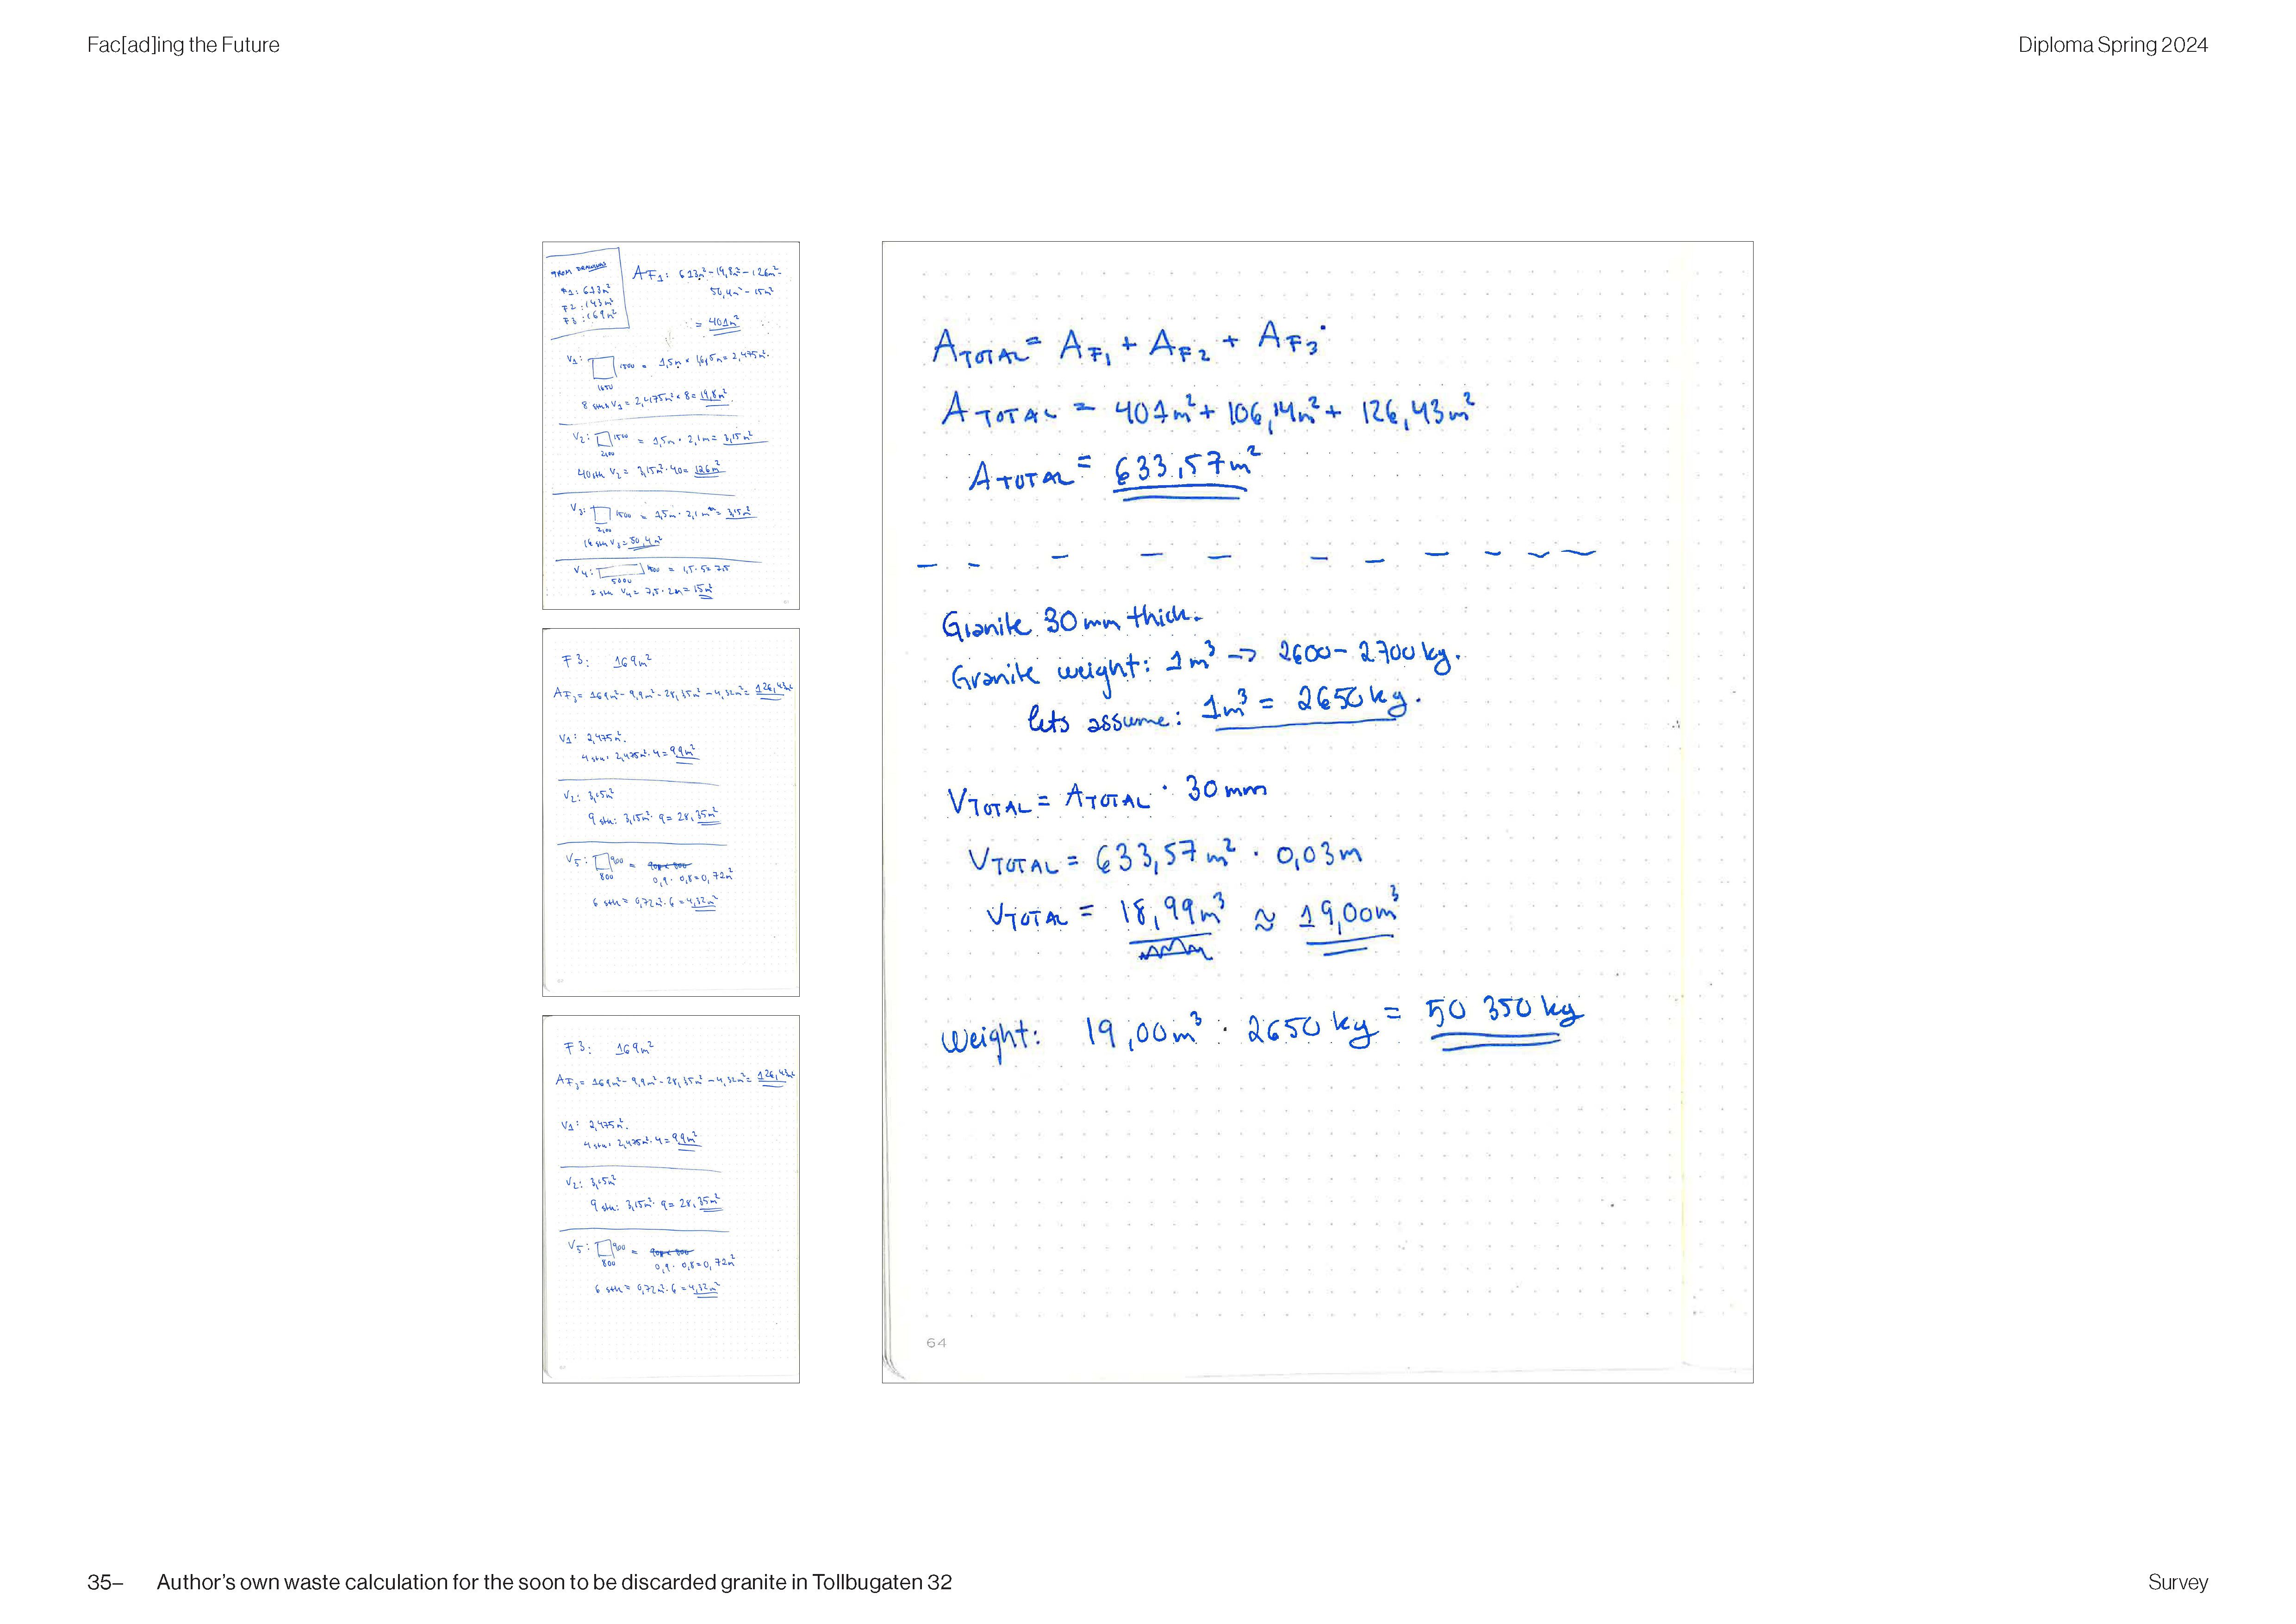 Fac[ad]ing the Future
Diploma Spring 2024
FROM DRAWINGS
F1: 613m²
F2: 143m²
F3: 169m²
AF1: 613m² - 19,8m² - 126m² -
50,4m² - 15m²
= 401m²
V1: 1500 = 1,5m × 16,5m = 2,475m².
1650
8 stk V1 = 2,475m² × 8 = 19,8m².
V2: 1500 = 1,5m · 2,1m = 3,15m²
2100
40 stk V2 = 3,15m² · 40 = 126m²
V3: 1500 = 1,5m · 2,1m = 3,15m²
2100
16 stk V3 = 50,4m²
V4: 1500 = 1,5 · 5 = 7,5
5000
2 stk V4 = 7,5 · 2m = 15m²
F3: 169m²
AF3 = 169m² - 9,9m² - 28,35m² - 4,32m² = 126,43m²
V1: 2,475m².
4 stk. 2,475m² · 4 = 9,9m²
V2: 3,15m²
9 stk: 3,15m² · 9 = 28,35m²
V5: 900 =
800 0,9 · 0,8 = 0,72m²
6 stk = 0,72m² · 6 = 4,32m²
F3: 169m²
AF3 = 169m² - 9,9m² - 28,35m² - 4,32m² = 126,43m²
V1: 2,475m².
4 stk. 2,475m² · 4 = 9,9m²
V2: 3,15m²
9 stk: 3,15m² · 9 = 28,35m²
V5: 900 =
800 0,9 · 0,8 = 0,72m²
6 stk = 0,72m² · 6 = 4,32m²
ATOTAL = AF1 + AF2 + AF3.
ATOTAL = 401m² + 106,14m² + 126,43m²
ATOTAL = 633,57m²
Granite 30mm thick.
Granite weight: 1m³ -> 2600-2700kg.
lets assume: 1m³ = 2650kg.
VTOTAL = ATOTAL · 30mm
VTOTAL = 633,57m² · 0,03m
VTOTAL = 18,99m³ ≈ 19,00m³
Weight: 19,00m³ · 2650kg = 50 350kg
64
35– Author's own waste calculation for the soon to be discarded granite in Tollbugaten 32
Survey